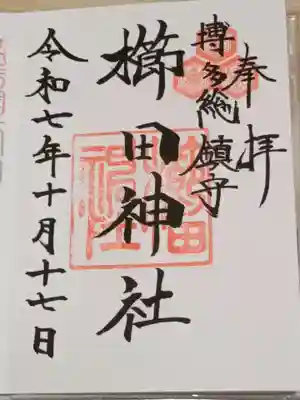 奉拝
博多総鎮守
櫛田神社
令和七年十月十七日